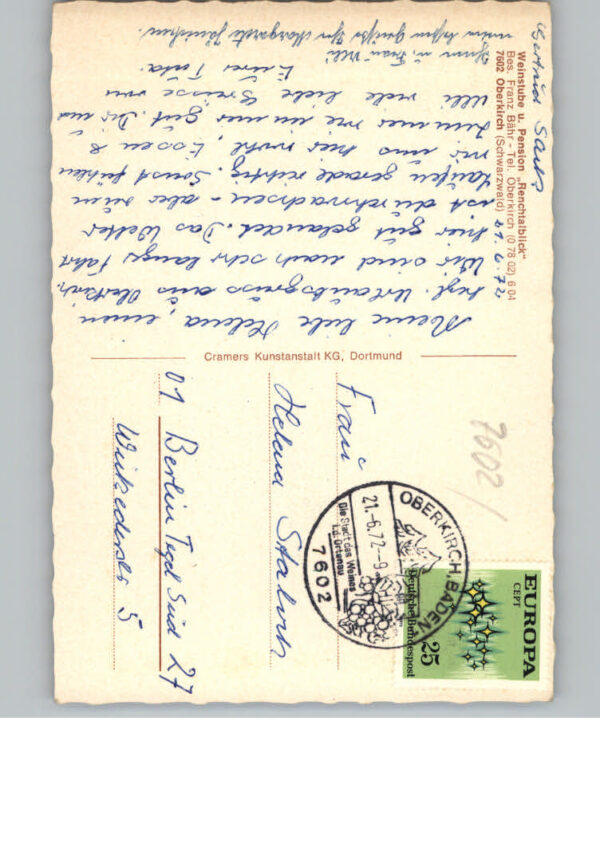 Weinstube u. Pension „Renchtalblick"
Bes. Franz Bähr - Tel. Oberkirch (0 78 02) 6 04
7602 Oberkirch (Schwarzwald)
21.6.72
Meine liebe Helena, einen
herzl. Urlaubsgruss aus Oberkirch.
Wir sind nach sehr langer Fahrt
hier gut gelandet. Das Wetter
ist durchwachsen - aber zum
Laufen gerade richtig. Sonst fühlen
wir uns hier wohl, Essen &
Zimmer wie immer gut. Dir und
Ulli viele liebe Grüsse von
Eurer
Ihnen u. Frau Ulli
Ihre Margarete
Gertrud
Cramers Kunstanstalt KG, Dortmund
7602
EUROPA
CEPT
Deutsche Bundespost
25
OBERKIRCH, BADEN
21.-6.72-9
Die Stadt des Weines
i.d. Ortenau
7602
Frau
Helena
01 Berlin Tegel Süd 27
5